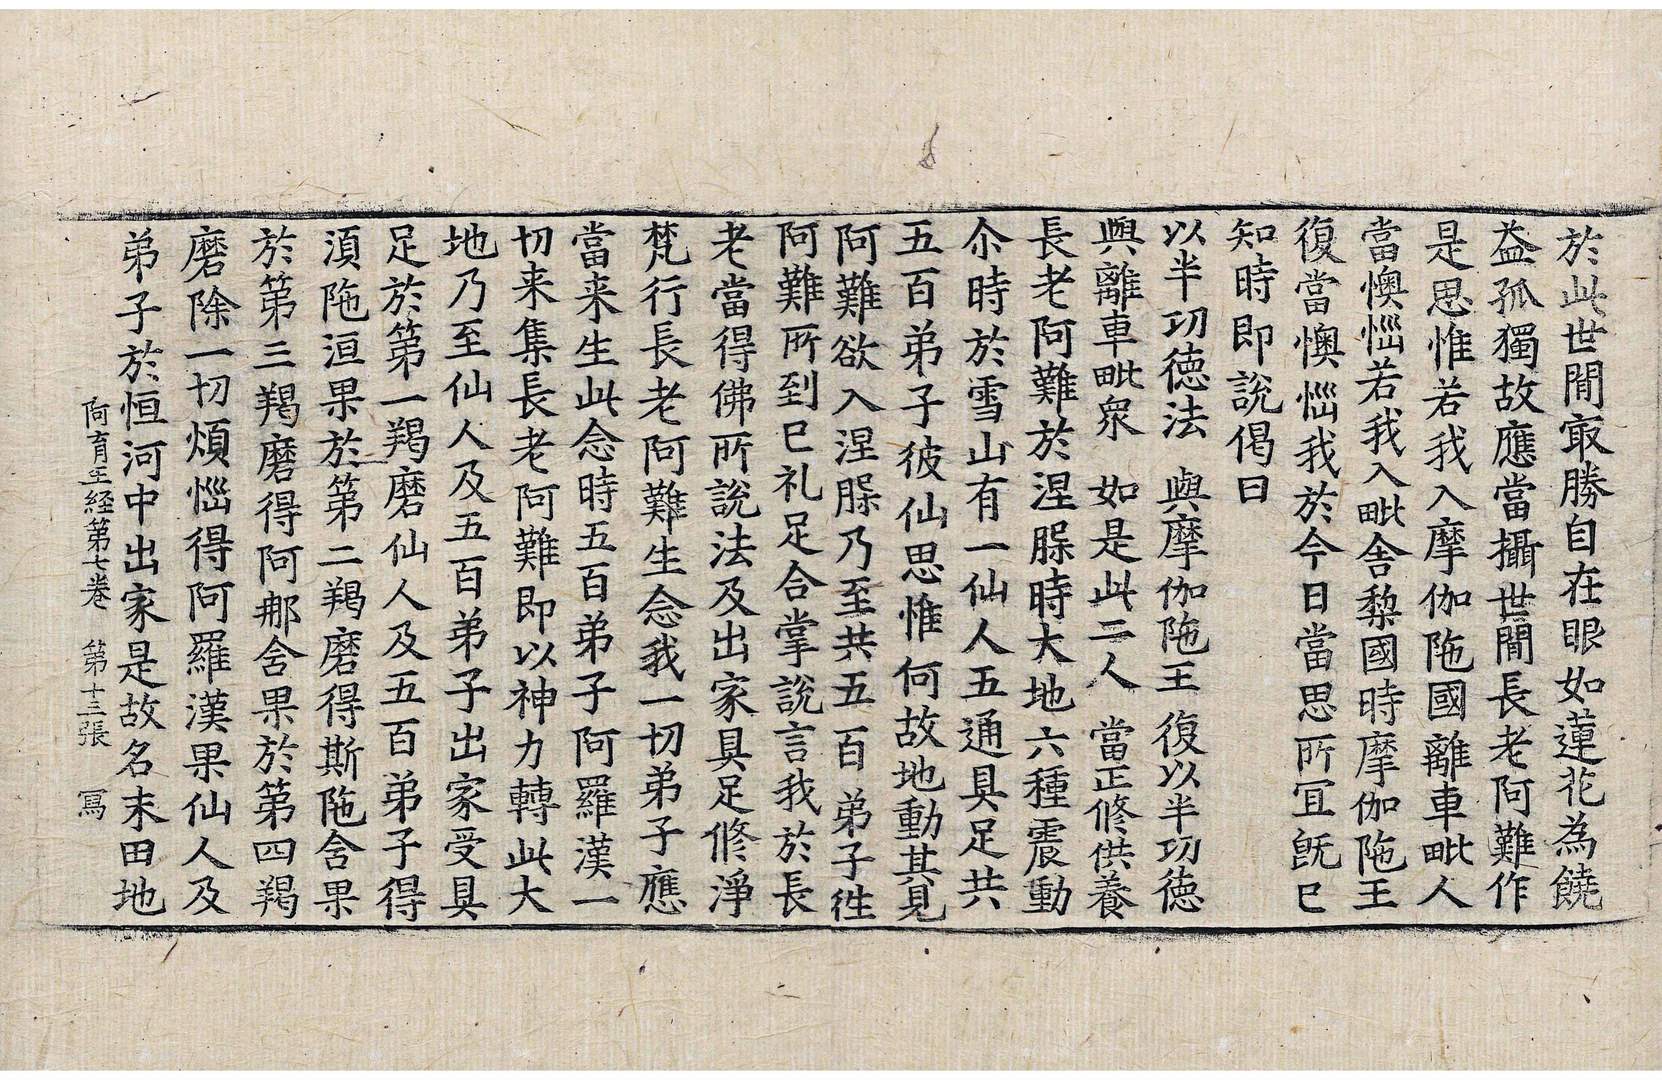 於此世間㝡勝自在眼如蓮花為饒
益孤獨故應當攝世間長老阿難作
是思惟若我入摩伽陁國離車毗人
當懊惱若我入毗舍梨國時摩伽陁王
復當懊惱我於今日當思所冝旣已
知時即說偈曰
以半功德法　與摩伽陁王　復以半功德
與離車毗衆　如是此二人　當正修供養
長老阿難於涅槃時大地六種震動
尒時於雪山有一仙人五通具足共
五百弟子彼仙思惟何故地動其見
阿難欲入涅槃乃至共五百弟子徃
阿難所到已礼足合掌說言我於長
老當得佛所說法及出家具足修淨
梵行長老阿難生念我一切弟子應
當来生此念時五百弟子阿羅漢一
切来集長老阿難即以神力轉此大
地乃至仙人及五百弟子出家受具
足於第一羯磨仙人及五百弟子得
湏陁洹果於第二羯磨得斯陁含果
於第三羯磨得阿那含果於第四羯
磨除一切煩惱得阿羅漢果仙人及
弟子於恒河中出家是故名末田地
阿育王経第七卷　第十三張　冩